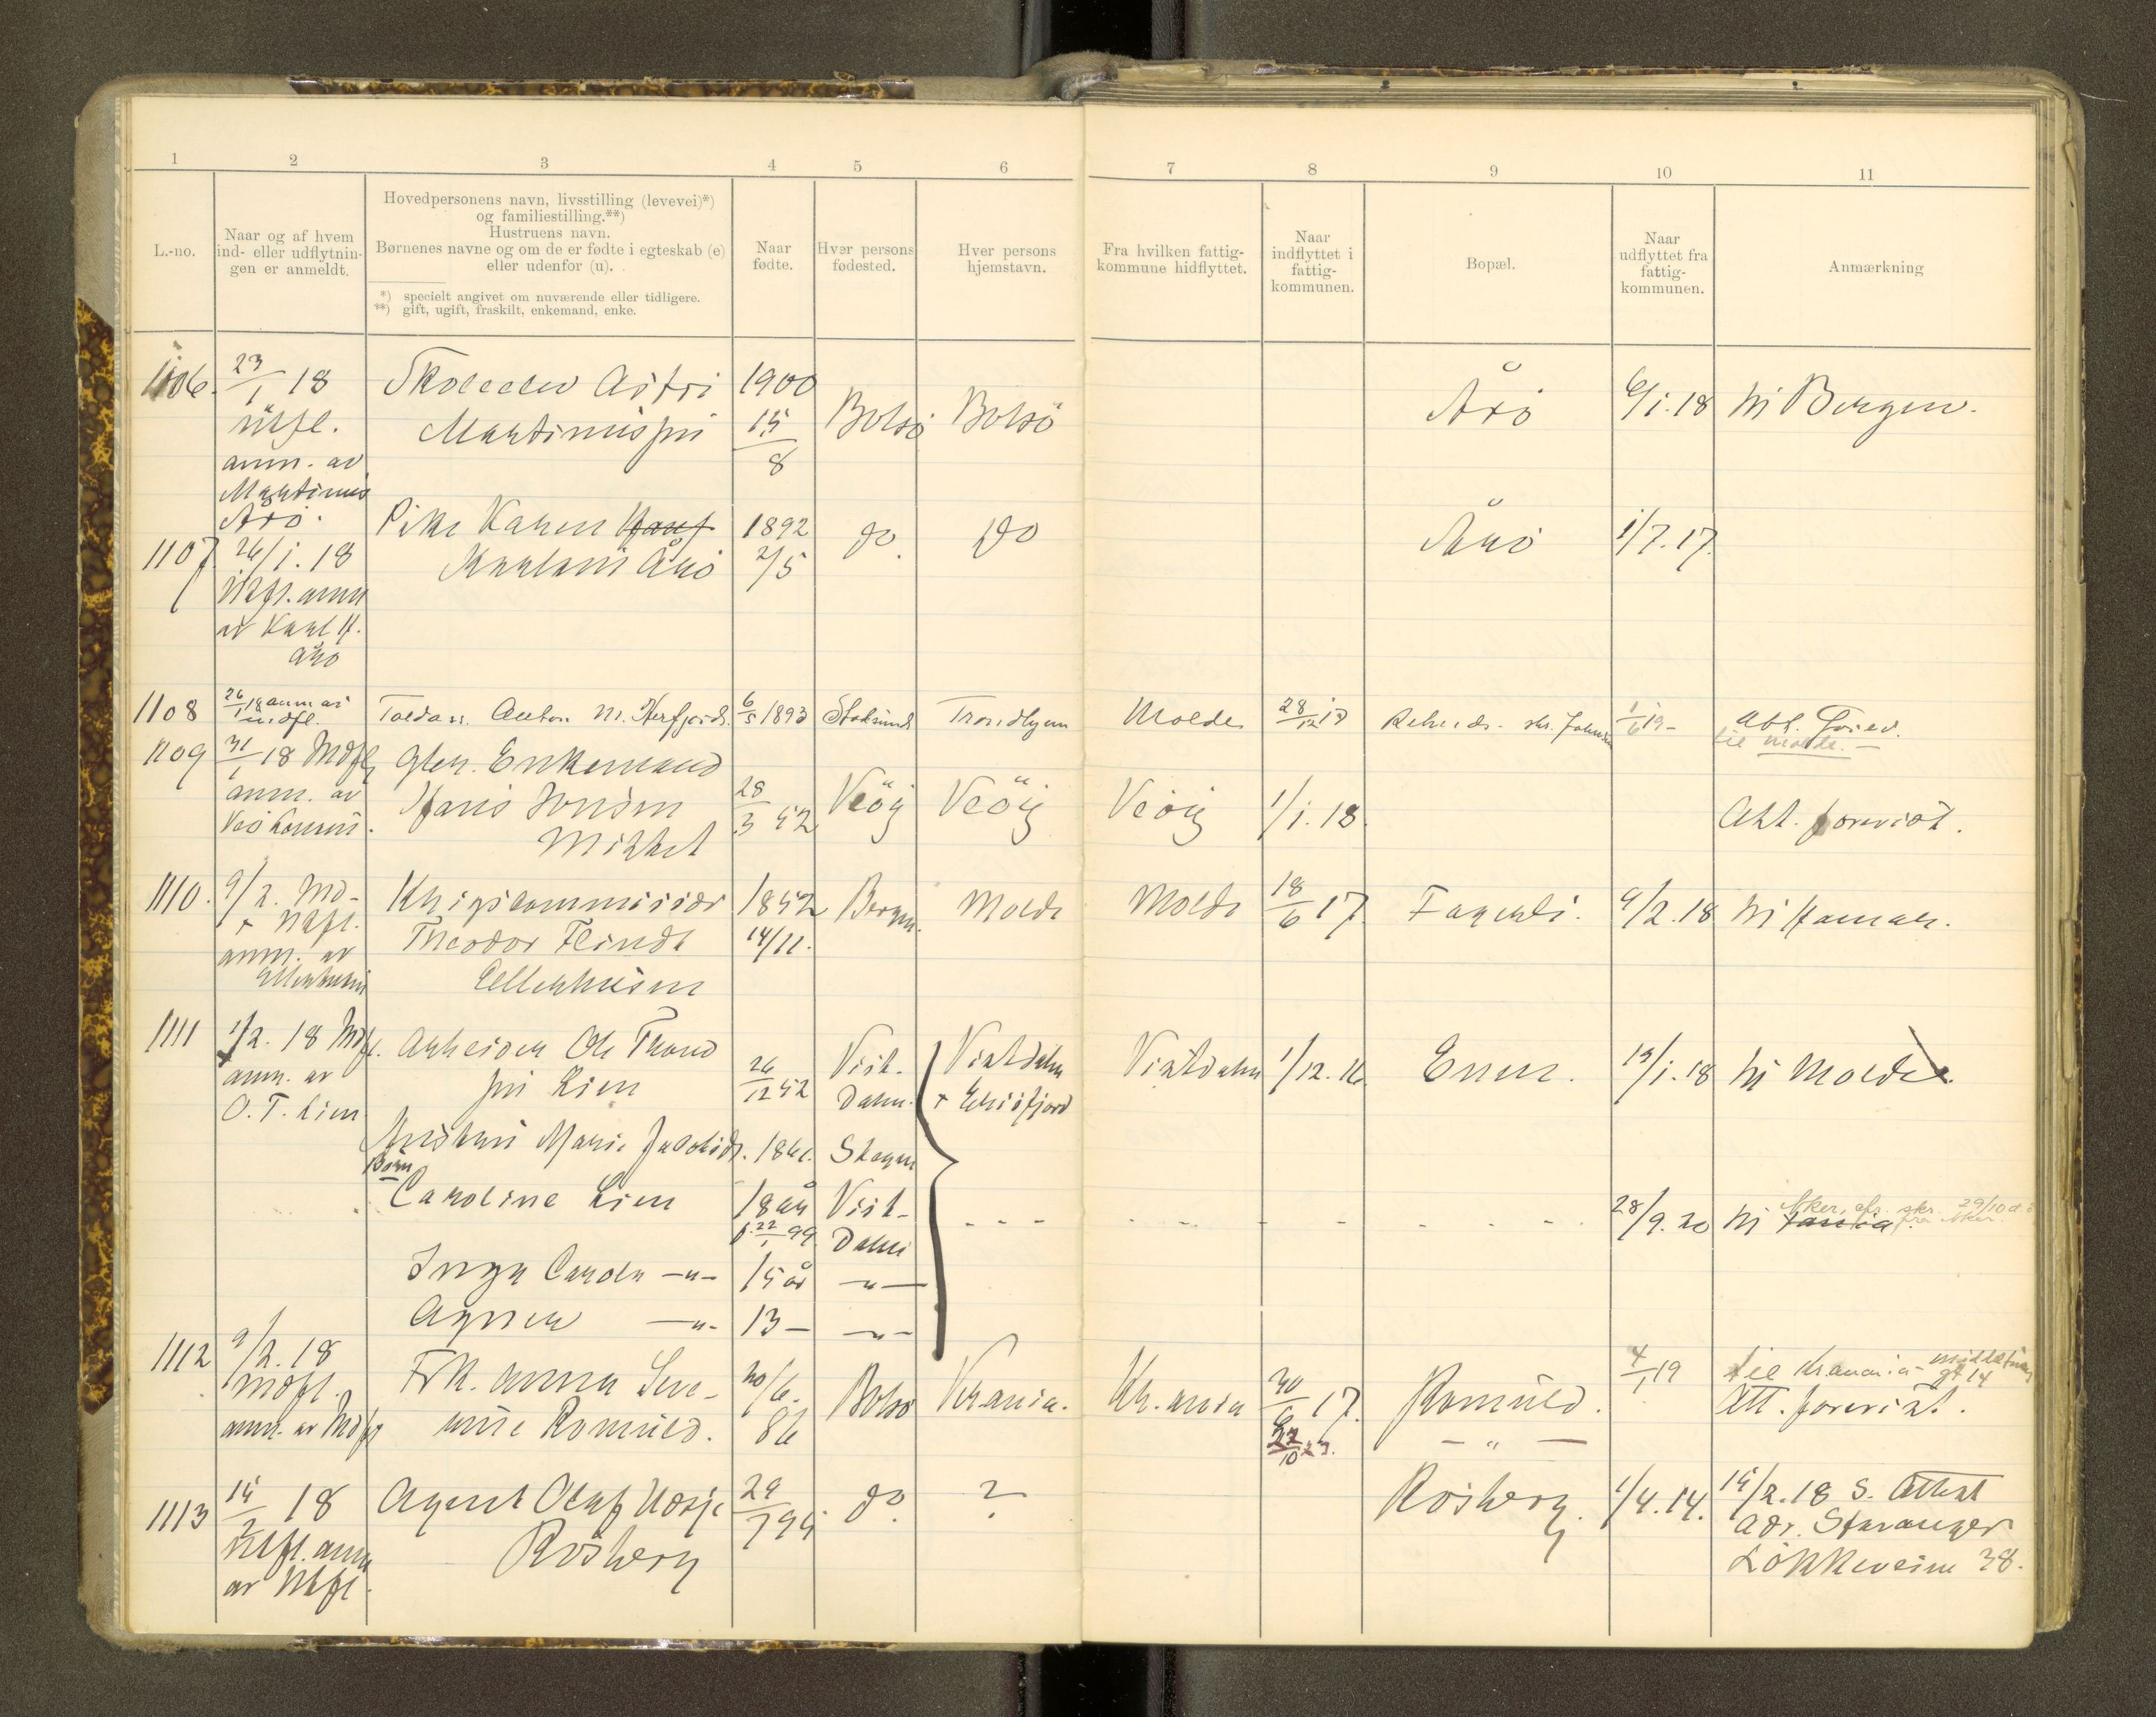 1 2 3 4 5 6 7 8 9 10 11
L.-no.
Naar og af hvem
ind- eller udflytnin-
gen er anmeldt.
Hovedpersonens navn, livsstilling (levevei)*)
og familiestilling.**)
Hustruens navn.
Børnenes navne og om de er fødte i egteskab (e)
eller udenfor (u).
*) specielt angivet om nuværende eller tidligere.
**) gift, ugift, fraskilt, enkemand, enke.
Naar
fødte.
Hver persons
fødested.
Hver persons
hjemstavn.
Fra hvilken fattig-
kommune hidflyttet.
Naar
indflyttet i
fattig-
kommunen.
Bopæl.
Naar
udflyttet fra
fattig-
kommunen.
Anmærkning
1106. 23/1 18 Skoleelev Astri 1900 Bolsö Bolsö Årö 6/1.18 til Bergen.
utfl. Martinuspir 15/8
anm. av
Martinus
Årö.
1107 26/1.18 Pike Karen 1892 do. do Årö 1/7.17.
Utfl. anm Karlsen Årö 2/5
av Karl H.
Årö
1108 26/1 18 anm av Toldass. Anton M. Herfjord. 6/5 1893 Stoksund Trondhjem Molde 28/12 17 1/6 19- Att. Forev.
indfl. til Molde. -
1109 31/1 18 Indfl glm. Enkemand
anm. av Hans Jonsen 28/3 52 Veöy Veöy Veöy 1/1.18. Att. forevist.
Veö komm. Mittet
1110. 9/2. Ind- Krigscommisiær 1852 Bergen. Molde Molde 18/6 17 Fagerli. 9/2.18 til Hamar.
+ Utfl. Theodor Flindt 14/11.
anm. av Ellerhusen
Ellerhusen
1111 1/2. 18 Indfl. Arbeider Ole Trond Vist- Vistdalen Vistdalen 1/12.16 Enen. 15/1.18 til Molde.
anm. av pir Lien 26/12 52 Dalen. + Erisfjord
O. T. Lien. Hustru Marie Jacobsd. 1861. Skagen
Børn
Caroline Lien 18 år Vist- - - - 28/9.20 til Aker, skr. 29/10
f. 22/1 99. Dalen fra Aker.
Inga Carola -"- 15 år -"-
Agnes -"- 13 - -"-
1112 9/2. 18 Frk. Anna Seve- 20/6. Bolsö Kr.ania. Kr.ania 30/6 17. Romuld. 4/1 19 til Kr.ania - gt 14
indfl. rine Romuld. 86 22/10 23. - " - Att. forevist.
anm. av Indfl
1113 15/2 18 Agent Olaf Hösje 29/7 95 do. ? Rösberg. 1/4.14. 15/2.18 S. Attest
Utfl. anm Rösberg Adr. Stavanger
av Utfl. Lökkeveien 38.